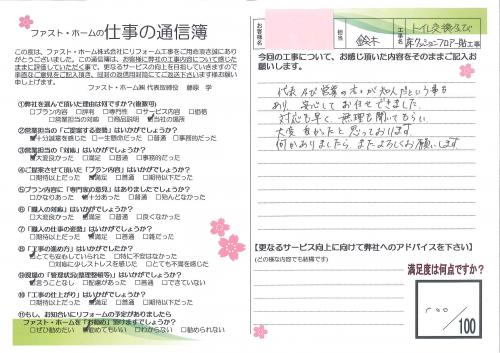 ファスト・ホームの仕事の通信簿
この度は、ファスト・ホーム株式会社にリフォーム工事をご用命頂き誠にあり
がとうございました。この通信簿は、お客様に弊社の工事内容について感じた
ままに評価していただく事で、更なるサービスの向上を目指していきますので
率直なご意見をご記入頂き、同封の返信用封筒にてご返送頂きます様お願い
申し上げます。
ファスト・ホーム㈱ 代表取締役 藤峽 学
①弊社を選んで頂いた理由は何ですか？(複数可)
□プラン内容 □評判 □専門力 □サービス内容 □価格
□営業担当の対応 □商品説明 ☑当社の場所
②営業担当の「ご提案する姿勢」はいかがでしょうか？
☑十分誠意を感じた □一生懸命だった □普通 □事務的だった
③営業担当の「対応」はいかがでしょうか？
☑大変良かった □満足 □普通 □事務的だった
④ご提案させて頂いた「プラン内容」はいかがでしょうか？
□期待以上だった ☑満足 □普通 □期待以下だった
⑤プラン内容に「専門家の意見」はありましたでしょうか？
□かなりあった ☑十分あった □普通 □殆んどなかった
⑥「職人の対応」はいかがでしょうか？
□大変良かった ☑満足 □普通 □良くなかった
⑦「職人の仕事の姿勢」はいかがでしょうか？
□期待以上だった ☑満足 □普通 □雑だった
⑧「工事の進めかた」はいかがでしたか？
☑とても安心していられた □特に不安はなかった
□対応に少しストレスを感じた □とても不満を感じた
⑨現場の「管理状況(整理整頓等)」はいかがでしょうか？
☑言うことなし □配慮があった □普通 □できていない
⑩「工事の仕上がり」はいかがでしょうか？
□期待以上だった ☑満足 □普通 □期待以下だった
⑪もし、お知合いにリフォームの予定がありましたら
ファスト・ホームを「お勧め」頂けますでしょうか？
□ぜひ勧めたい ☑勧めてもいい □わからない □勧められない
お客様名
様
担当
鈴木
工事名
トイレ交換及び
床クッションフロアー貼工事
今回の工事について、お感じ頂いた内容をそのままご記入お
願いします。
代表及び営業の方が犬山だという事も
あり、安心してお任せできました。
対応も早く、無理も聞いてもらい
大変良かったと思っております。
何かありましたら、またよろしくお願いします
【更なるサービス向上に向けて弊社へのアドバイスを下さい】
(どの様な内容でも結構です)
満足度は何点ですか？
100
/100